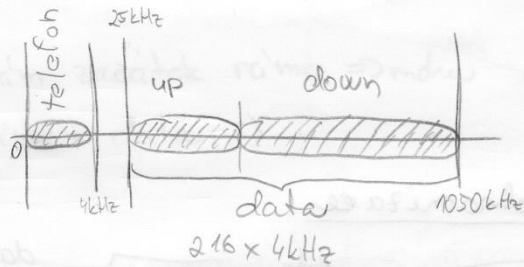 telefon
25kHz
up
down
0
4kHz
data
1050kHz
216 x 4kHz